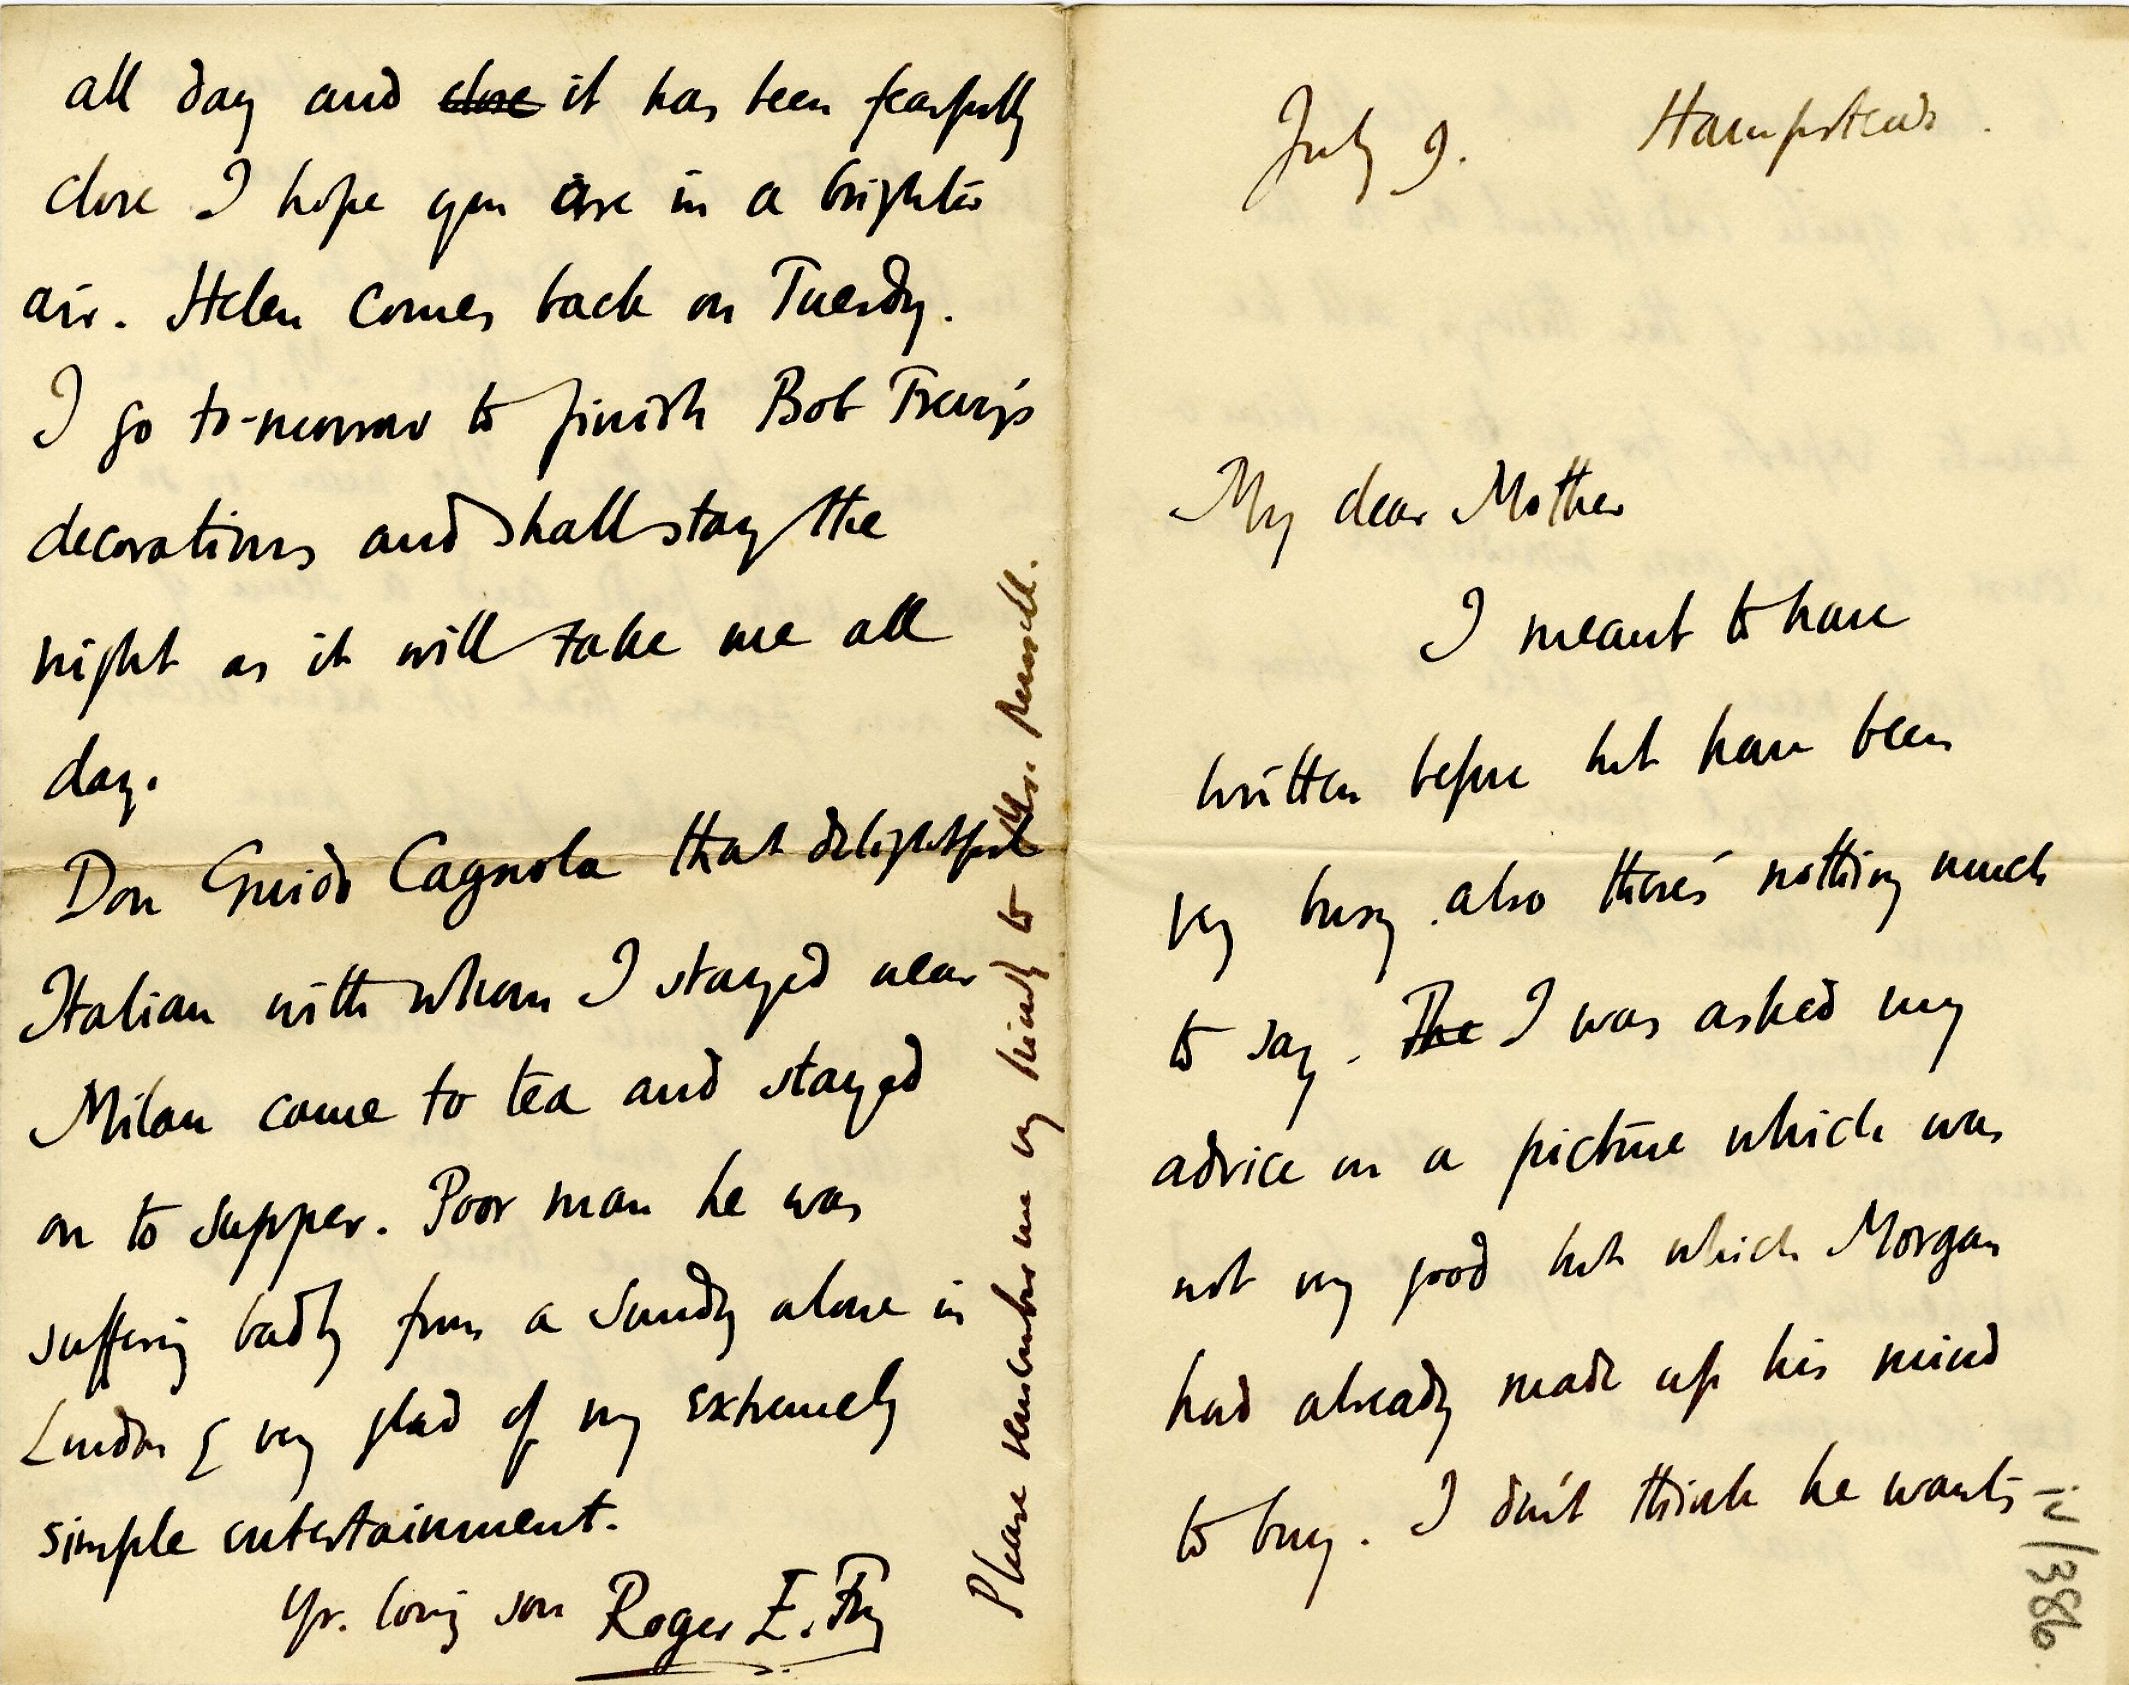 July 9. Hampstead.
My dear Mother
I meant to have
written before but have been
very busy. also there's nothing much
to say. The I was asked my
advice on a picture which was
not very good but which Morgan
had already made up his mind
to buy. I don't think he wants
iv/386.
all day and close it has been fearfully
close I hope you are in a brighter
air. Helen comes back on Tuesday.
I go to-morrow to finish Bob Trevy's
decorations and shall stay the
night as it will take me all
day.
Don Guido Cagnola that delightful
Italian with whom I stayed near
Milan came to tea and stayed
on to supper. Poor man he was
suffering badly from a Sunday alone in
London & very glad of my extremely
simple entertainment.
Yr. loving son Roger E. Fry
Please remember me very kindly to Mrs. Pursell.